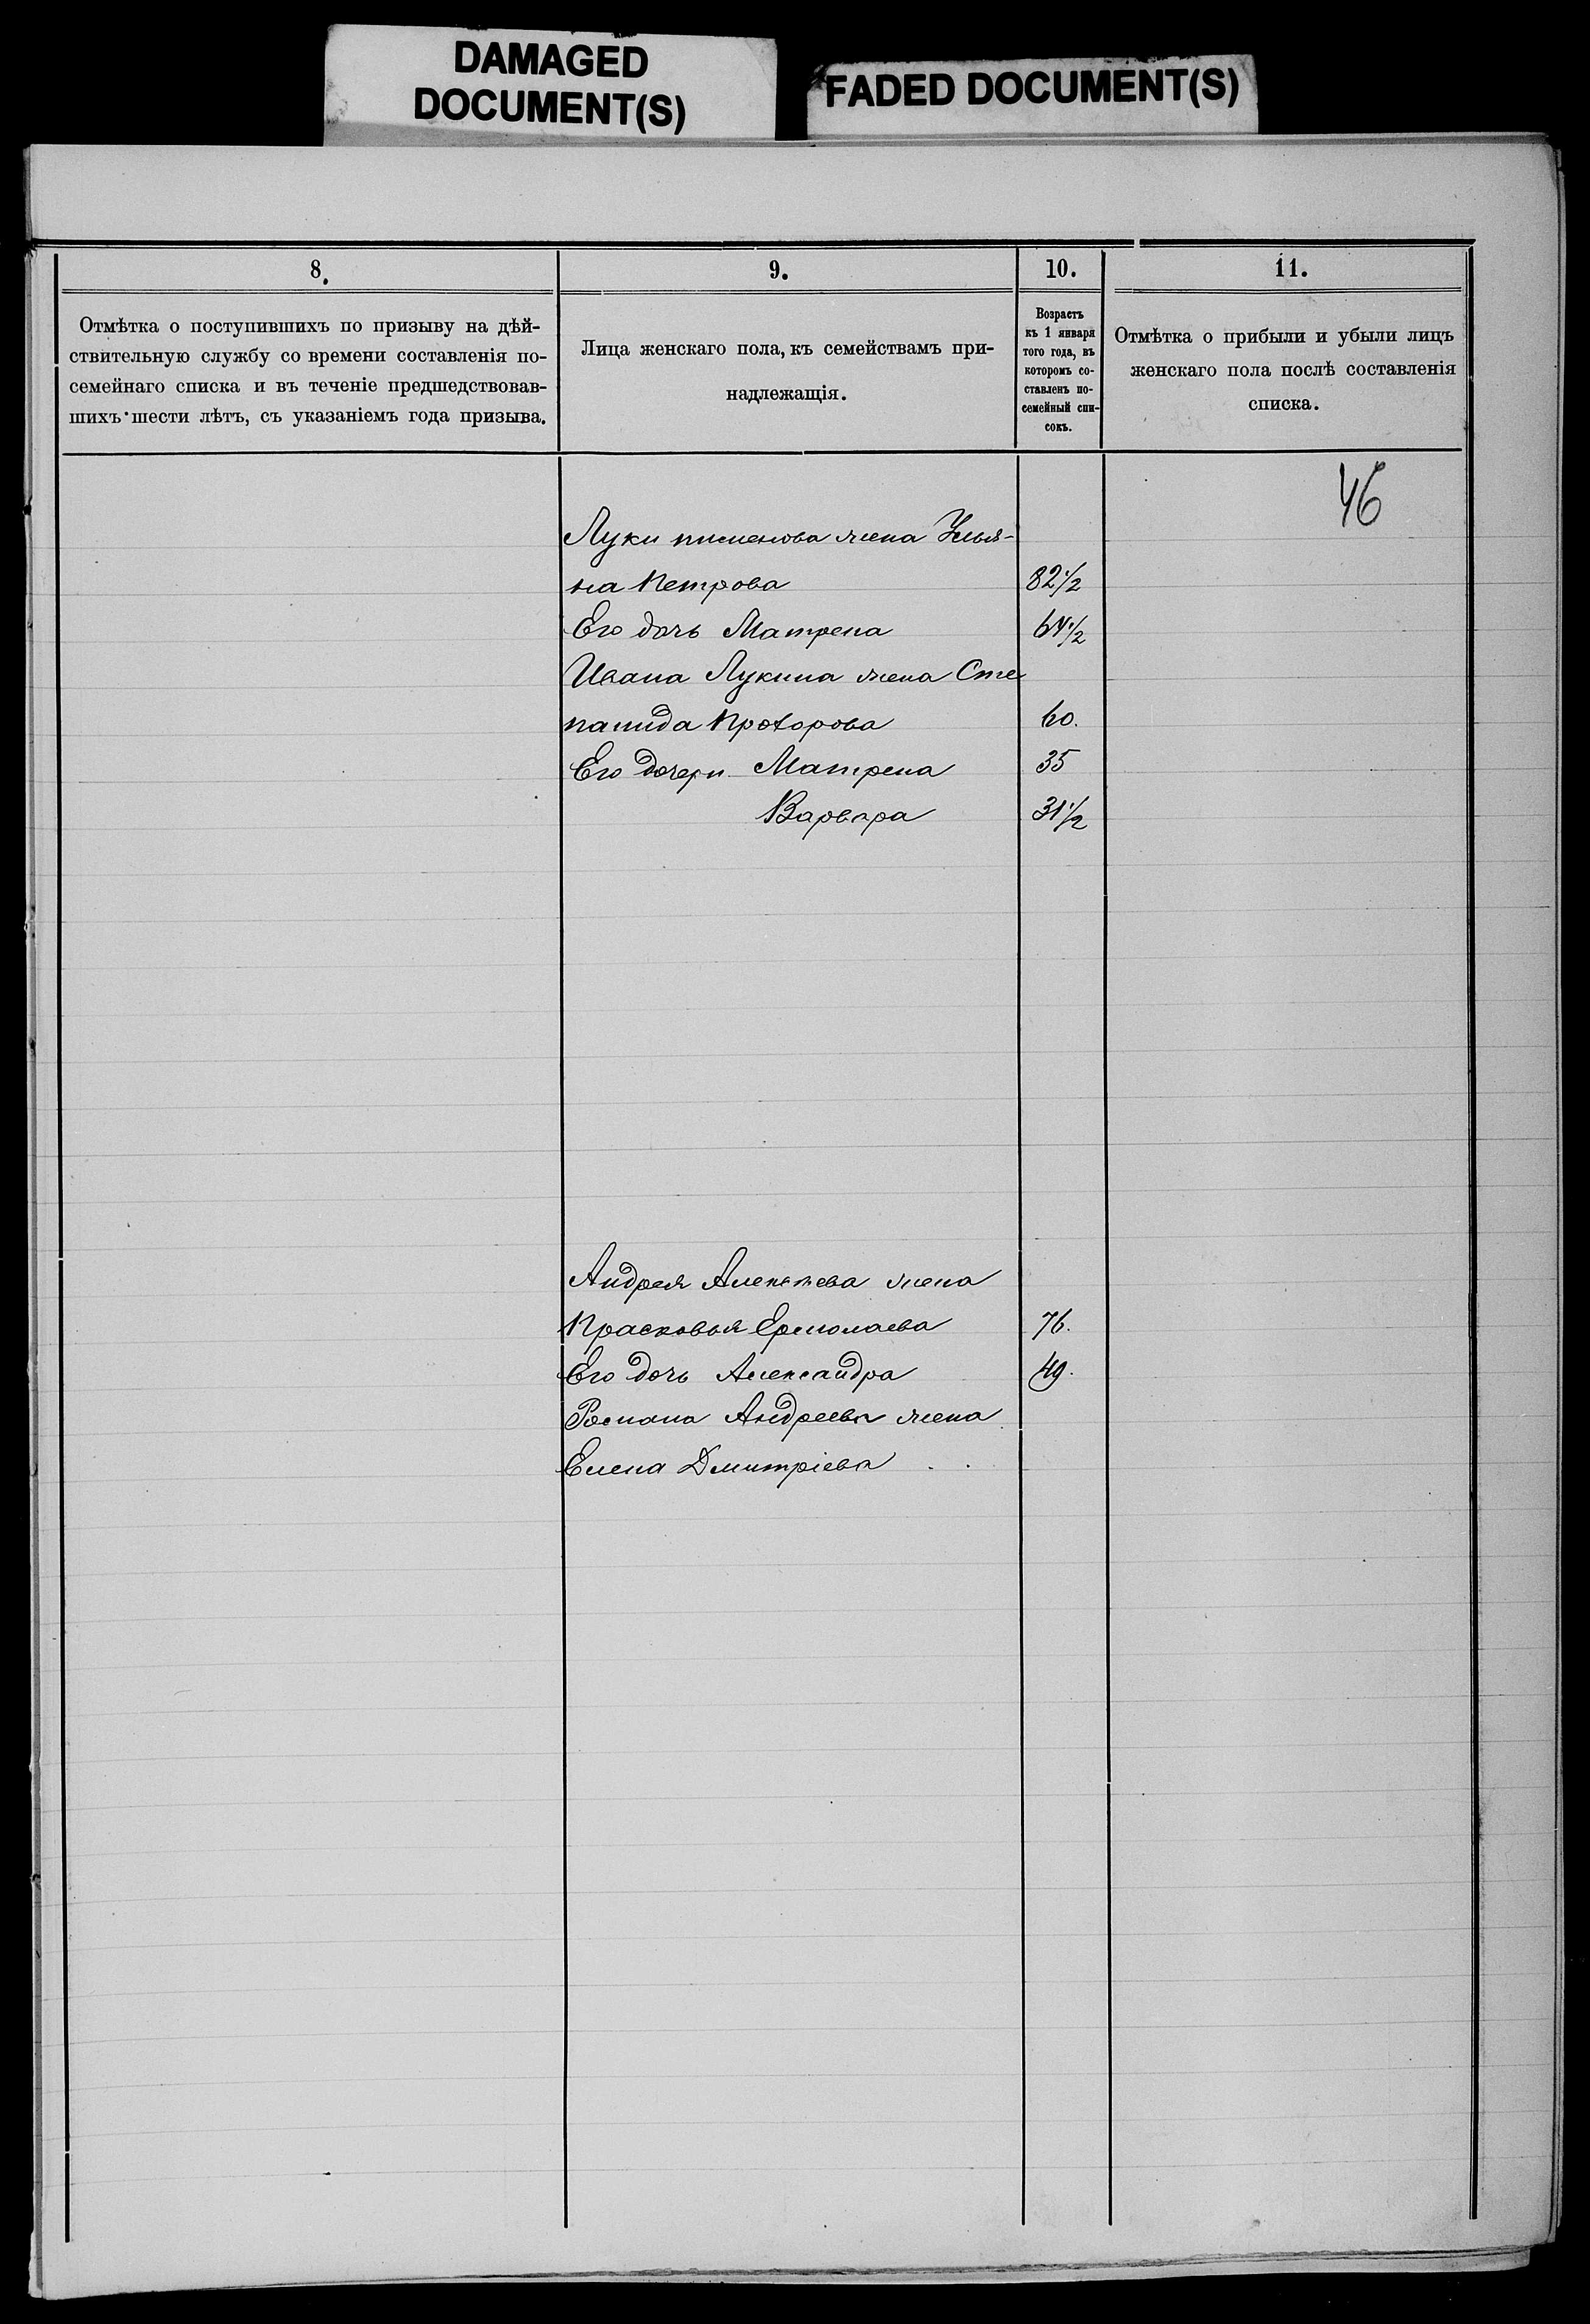 DAMAGED
DOCUMENT(S)
FADED DOCUMENT(S)
8.
9.
10.
11.
Отмѣтка о поступившихъ по призыву на дѣй-
ствительную службу со времени составленія по-
семейнаго списка и въ теченіе предшедствовав-
шихъ шести лѣтъ, съ указаніемъ года призыва.
Лица женскаго пола, къ семействамъ при-
надлежащія.
Возрастъ
къ 1 января
того года, въ
которомъ со-
ставленъ по-
семейный спи-
сокъ.
Отмѣтка о прибыли и убыли лицъ
женскаго пола послѣ составленія
списка.
46
Луки пименова жена Улья-
на Петрова 82 1/2
Его дочь Матрена 64 1/2
Ивана Лукина жена Сте
панида Прохорова 60.
Его дочери Матрена 35
Варвара 31 1/2
Андрея жена
Прасковья Ермолаева 76.
Его дочь Александра 49.
Романа Андреева жена
Елена Дмитріева